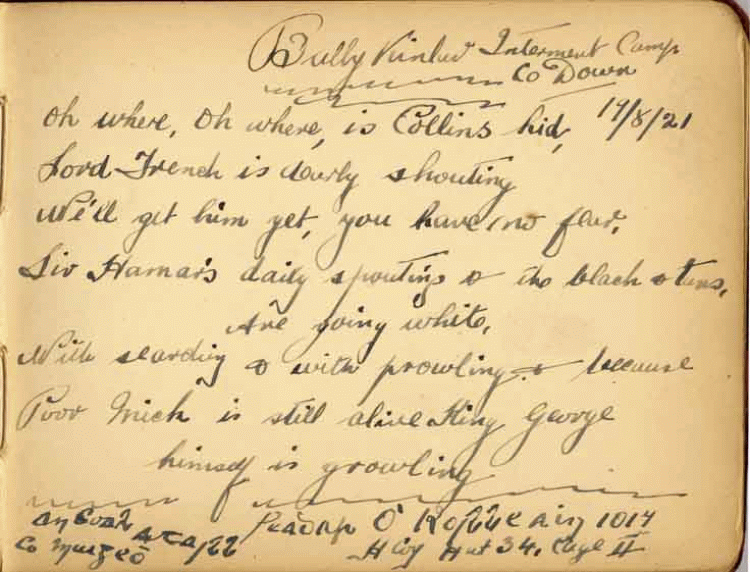 Bally Kinlar Interment Camp
Co Down
17/8/21
Oh where, Oh where, is Collins hid,
Lord French is dourly shouting
We'll get him yet, you have no fear,
Sir Hamar's daily spoutings & the black & tans,
Are going white,
With searching & with prowling & because
Poor Mick is still alive King George
himself is growling
Peadar Ó 1017
H Coy Hut 34, Cage II
Co